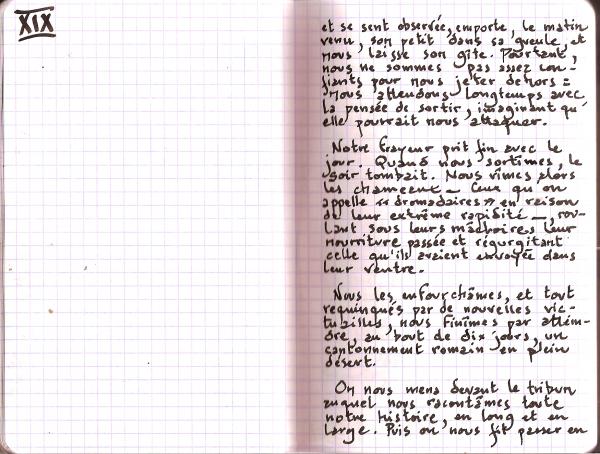 XIX
et se sent observée, emporte, le matin
venu, son petit dans sa gueule et
nous laisse son gîte. Pourtant,
nous ne sommes pas assez con-
fiants pour nous jeter dehors :
nous attendons longtemps avec
la pensée de sortir, imaginant qu'
elle pourrait nous attaquer.
Notre frayeur prit fin avec le
jour. Quand nous sortîmes, le
soir tombait. Nous vîmes alors
les chameaux – ceux qu'on
appelle « dromadaires » en raison
de leur extrême rapidité –, rou-
lant sous leurs mâchoires leur
nourriture passée et régurgitant
celle qu'ils avaient envoyée dans
leur ventre.
Nous les enfourchâmes, et tout
requinqués par de nouvelles vic-
tuailles, nous finîmes par attein-
dre, au bout de dix jours, un
cantonnement romain en plein
désert.
On nous mena devant le tribun
auquel nous racontâmes toute
notre histoire, en long et en
large. Puis on nous fit passer en